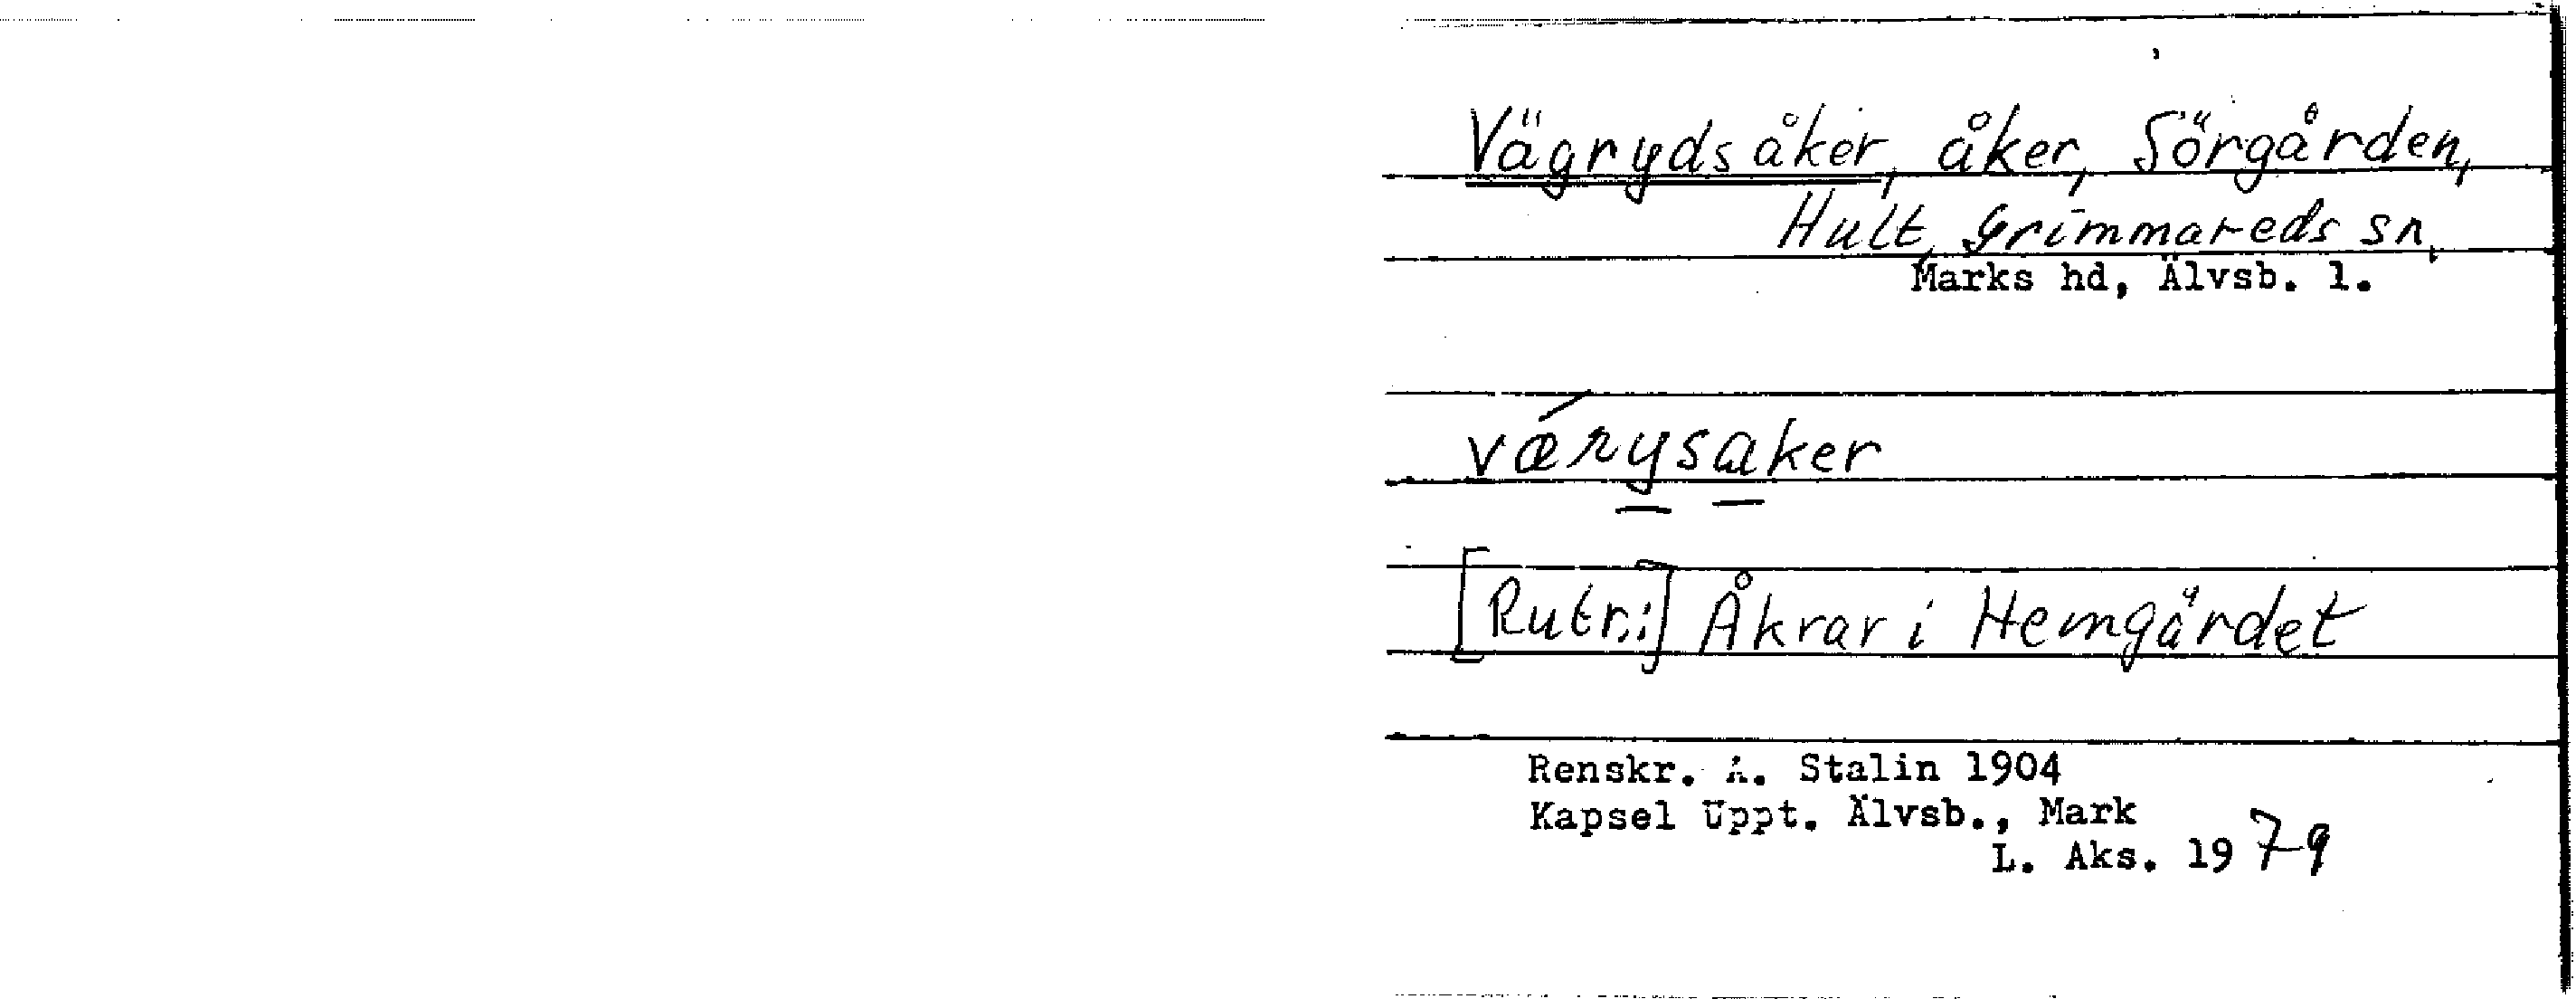 Vägrydsåker, åker, Sörgården,
Hult, Grimmareds sn,
Marks hd, Älvsb. l.
vǽrysaker
[Rutr.:] Åkrar i Hemgärdet
Renskr. A. Stalin 1904
Kapsel Uppt. Älvsb., Mark
L. Aks. 1979